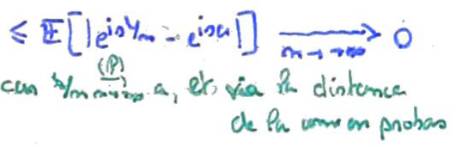 ≤ 𝔼[|e^{isY_n} - e^{isa}|] ⟶_{n→+∞} 0
car Y_n ⟶^{(P)}_{n→+∞} a, et via la distance
de la conv en probas